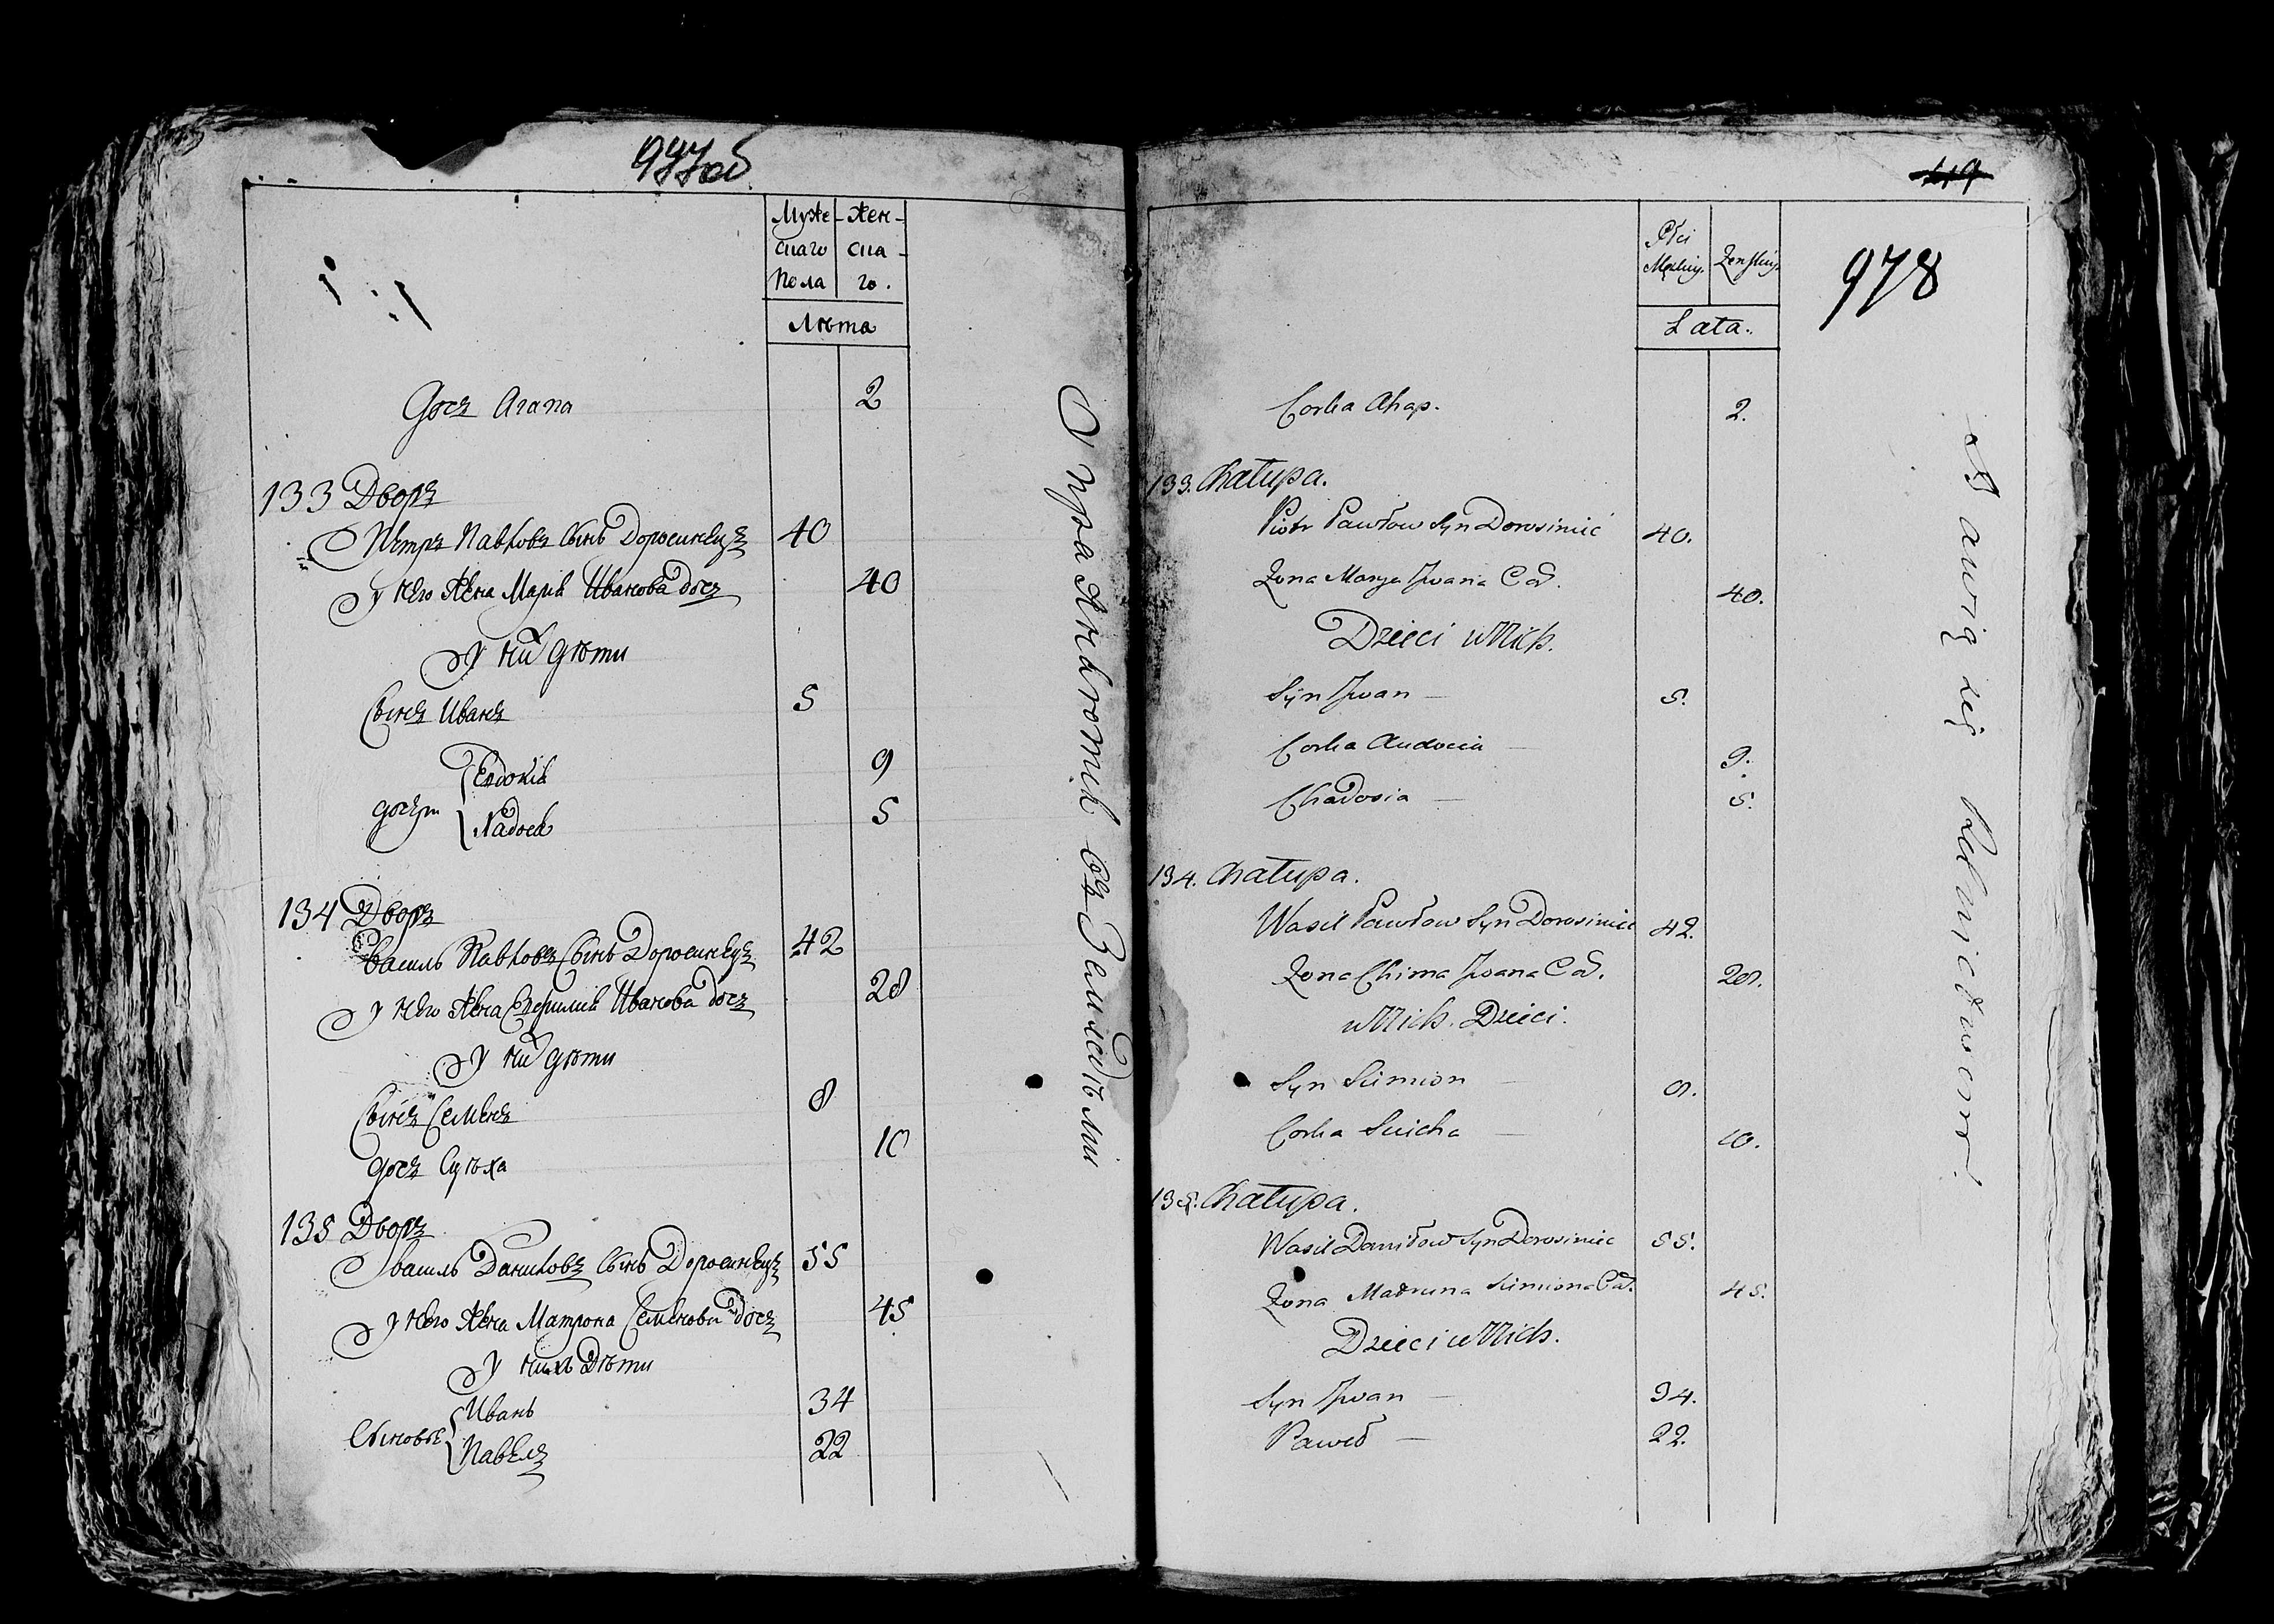 977об
Муже- Жен-
скаго ска-
Пола го.
Лѣта
Дочъ Агапа 2
133 Дворъ
Петръ Павловъ Сынъ Доросинецъ 40
У него Жена Марія Иванова дочъ 40
У ни дѣти
Сынъ Иванъ 5
Евдокія 9
дочери
Хадося 5
134 Дворъ
Василь Павловъ Сынъ Доросинецъ 42
У него Жена Ефимія Иванова дочъ 28
У ни дѣти
Сынъ Семенъ 8
дочъ 10
135 Дворъ
Василь Даниловъ Сынъ Доросинецъ 55
У него Жена Матрона Семенова дочъ 45
У нихъ Дѣти
Иванъ 34
Сыновья
Павелъ 22
Упражняютца въ Земледѣліи
119
978
Płci
Męskiey. Żenskiey.
Lata.
Corka Ahap. 2.
133. Chałupa.
Piotr Pawłow Syn Dorosiniec 40.
Żona Marya Jwana Cór. 40.
Dzieci u Nich.
Syn Jwan — 5.
Corka Audocia — 9.
Chadosia — 5.
134. Chałupa.
Wasil Pawłow Syn Dorosiniec 42.
Żona Chima Jwana Cór. 28.
u Nich. Dzieci.
Syn Siemion — 8.
Corka — 10.
135. Chałupa.
Wasil Daniłow Syn Dorosiniec 55.
Żona Madruna Siemiona Cór. 45.
Dzieci u Nich.
Syn Jwan — 34.
Paweł — 22.
Bawią się Rolnictwem.